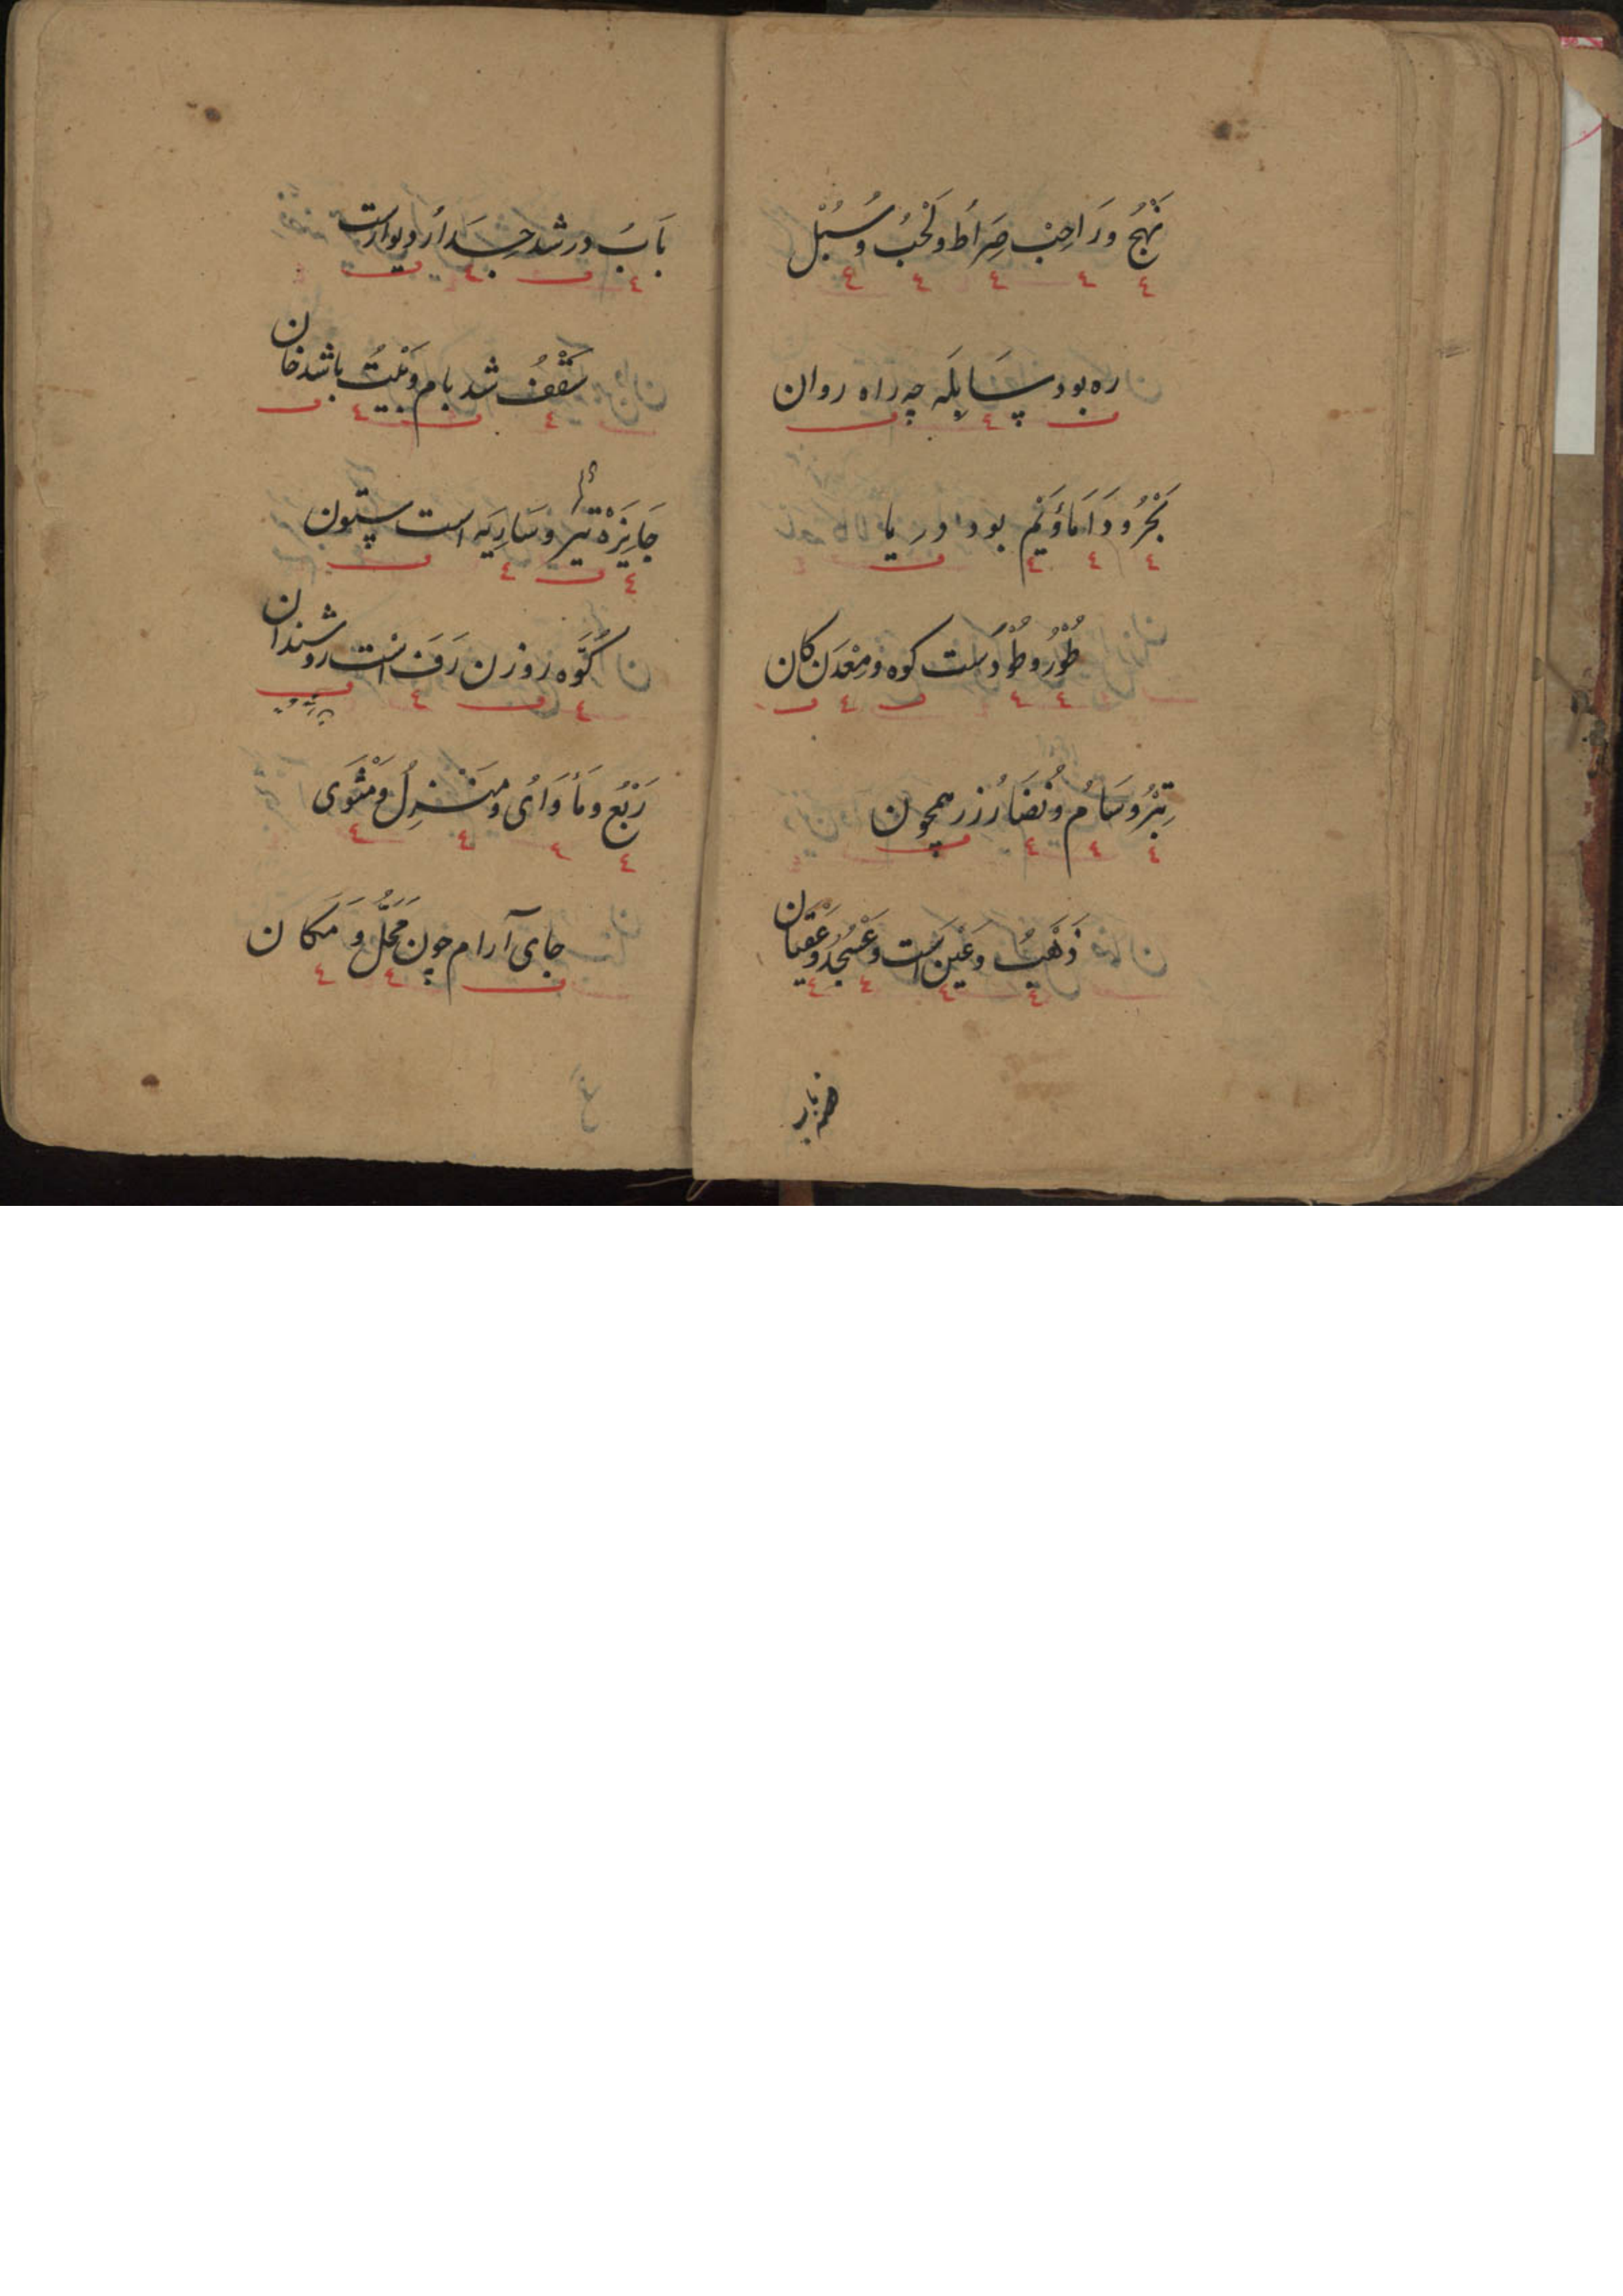 نَهْجُ وَرَاجِبْ صِرَاطُ وَلَحْبُ وَسُبُلْ
ره بود سَابِلَه چه راه روان
بَحْرُ و دَأمَاؤُ يَمْ بود دریا
طُوْرُ و طُوْدست کوه و مَعْدَن کان
تِبْرُ و سَامُ و نُضَارُ زر همچون
ذَهَبُ و عَيْن است و عَسْجَدُ و عِقْيَان
بَابُ در شد جِدَارُ دیوارست
سَقْفُ شد بام و بَيْتُ باشد خان
جَايِزَهْ تیر و سَارِيَه است ستون
كُوَّه روزن رَف است روشندان
رَبْعُ و مَأوَاى و مَنْزِلُ و مَثْوَى
جای آرام چون مَحَلُّ و مَكان